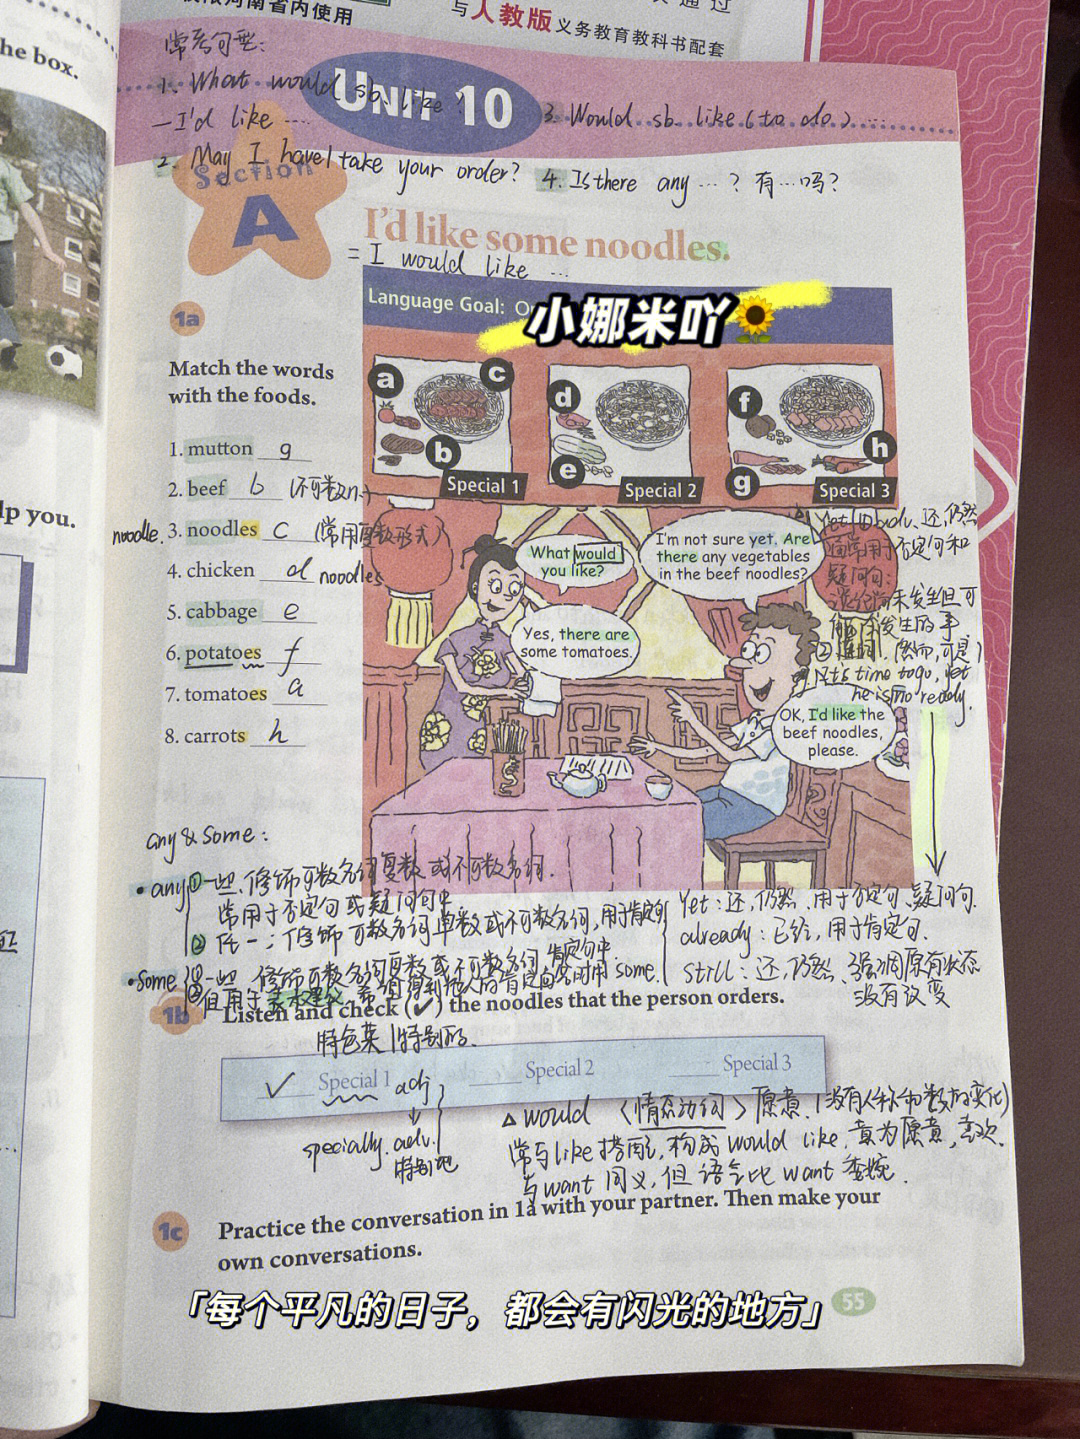 he box.
lp you.
仅限河南省内使用
与人教版义务教育教科书配套
通过
常考句型:
1. What would sb. like?
—I'd like ...
2. May I have/take your order?
3. Would sb. like (to do) ...
4. Is there any ...? 有...吗?
UNIT 10
Section
A
I'd like some noodles.
= I would like ...
Language Goal: O
小娜米吖🌻
1a
Match the words
with the foods.
1. mutton g
2. beef b (不可数n.)
noodle. 3. noodles c (常用复数形式)
4. chicken d noodles
5. cabbage e
6. potatoes f
7. tomatoes a
8. carrots h
a
c
b
Special 1
d
e
Special 2
f
h
g
Special 3
What would
you like?
I'm not sure yet. Are
there any vegetables
in the beef noodles?
Yes, there are
some tomatoes.
OK, I'd like the
beef noodles,
please.
Yet ① adv. 还,仍然
通常用于否定句和
疑问句:
未发生但可
能会发生的事
② 连词. (然而,可是)
It's time to go, yet
he is no ready.
any & some:
• any ① 一些,修饰可数名词复数或不可数名词.
常用于否定句或疑问句中
② 任一;修饰可数名词单数或不可数名词,用于肯定句
• some ① 一些,修饰可数名词复数或不可数名词 肯定句中.
② 但用于表示建议,希望得到他人的肯定回答时用 some.
Yet: 还,仍然,用于否定句、疑问句.
already: 已经,用于肯定句.
still: 还,仍然、强调原有状态
没有改变
1b
Listen and check (✓) the noodles that the person orders.
特色菜 | 特别的.
✓ Special 1 adj
Special 2
Special 3
specially. adv.
特别地
△ would <情态动词> 愿意. (没有人称和数的变化)
常与like搭配,构成would like, 意为愿意,喜欢.
与want同义,但语气比want委婉.
1c
Practice the conversation in 1a with your partner. Then make your
own conversations.
「每个平凡的日子,都会有闪光的地方」
55